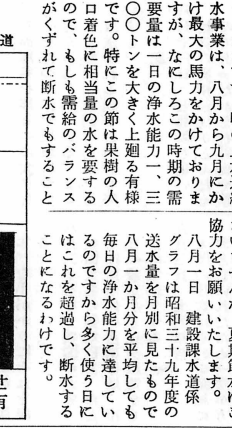 水事業は、八月から九月にか
け最大の馬力をかけておりま
すが、なにしろこの時期の需
要量は一日の浄水能力一、三
〇〇トンを大きく上廻る有様
です。特にこの節は果樹の人
口着色に相当量の水を要する
ので、もしも需給のバランス
がくずれて断水でもすること
協力をお願いいたします。
八月一日　建設課水道係
グラフは昭和三十九年度の
送水量を月別に見たもので
八月一か月分を平均しても
毎日の浄水能力に達してい
るのですから多く使う日に
はこれを超過し、断水する
ことになるわけです。
道